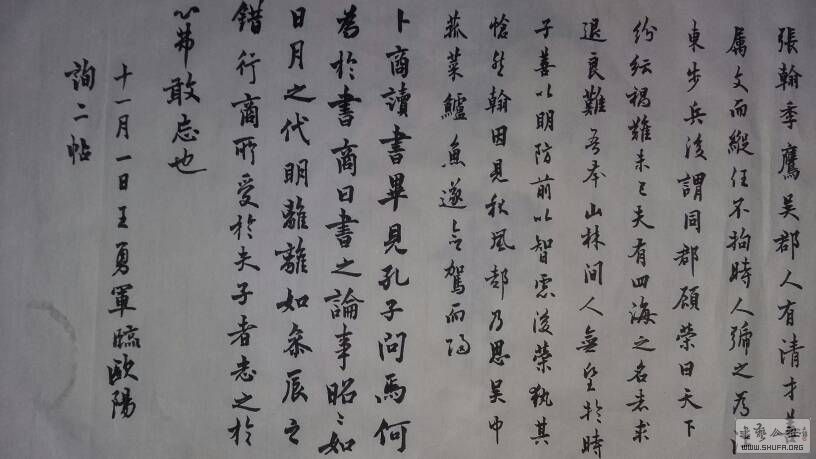 張翰季鷹吳郡人有清才善
属文而縱任不拘時人號之為江
東步兵後謂同郡顧榮曰天下
紛紜禍難未已夫有四海之名者求
退良難吾本山林間人無望於時
子善以明防前以智慮後榮執其
愴然翰因見秋風起乃思吳中
菰菜鱸魚遂命駕而歸
卜商讀書畢見孔子問焉何
為於書商曰書之論事昭〻如
日月之代明離離如參辰之
錯行商所受於夫子者志之於
心弗敢忘也
十一月一日王勇軍臨歐陽
詢二帖
書法公益
WWW.SHUFA.ORG